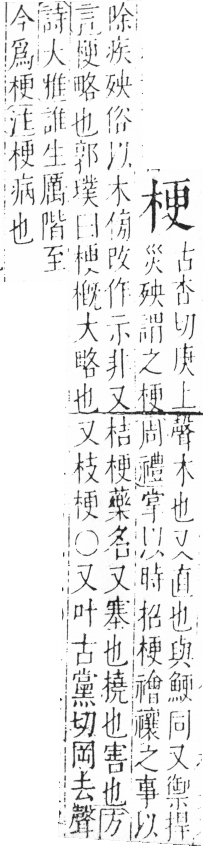 梗古杏切庚上聲木也又直也與鯁同又禦捍
災殃謂之梗周禮掌以時招梗禬禳之事以
除疾殃俗以木傍改作示非又桔梗藥名又塞也撓也害也方
言梗略也郭璞曰梗概大略也又枝梗〇又叶古黨切岡去聲
詩大雅誰生厲階至
今爲梗注梗病也